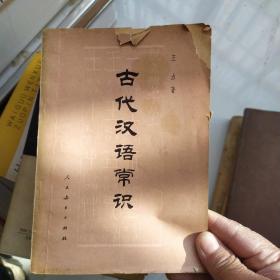 王力著
古代汉语常识
人民教育出版社
WAI GUO